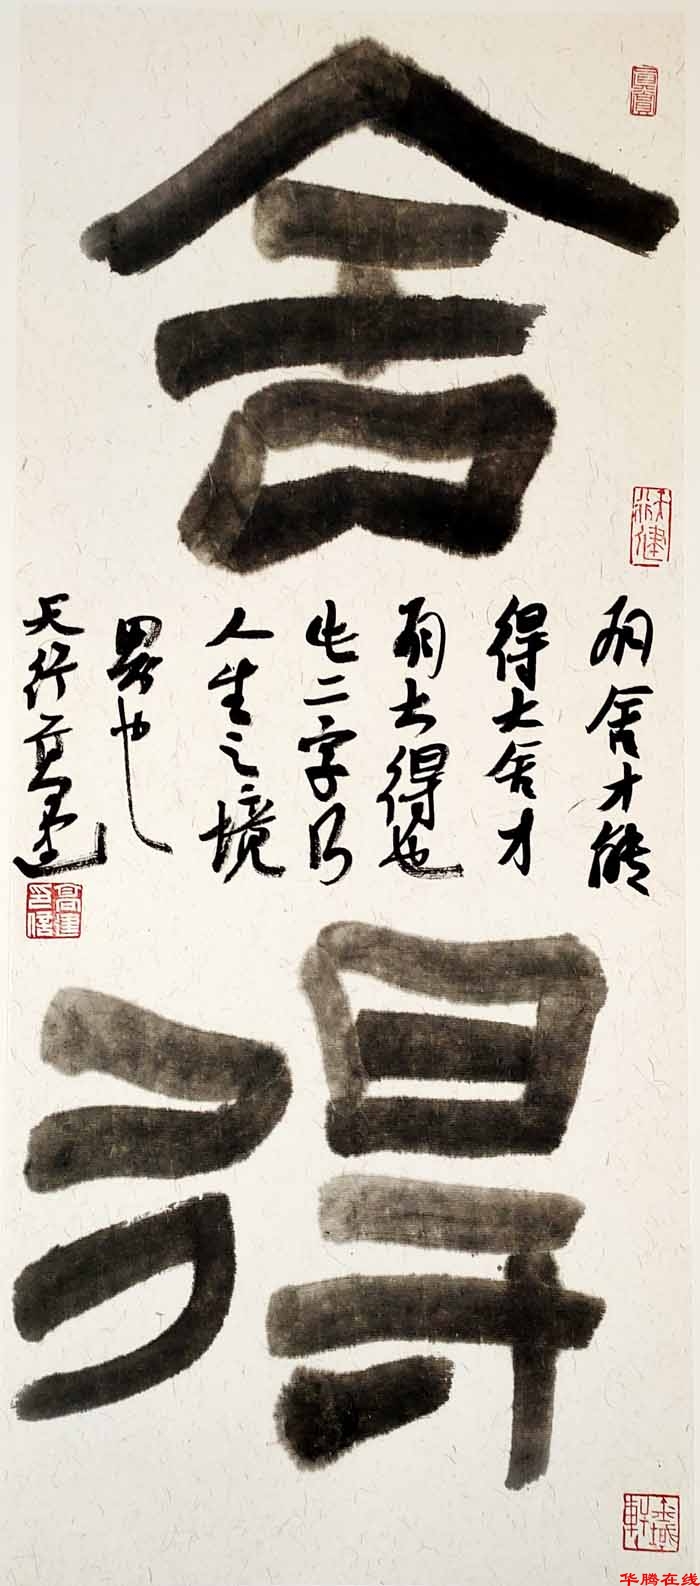 舍
得
有舍才能
得大舍才
有大得也
此二字乃
人生之境
界也
天行
高建
印信
华腾在线